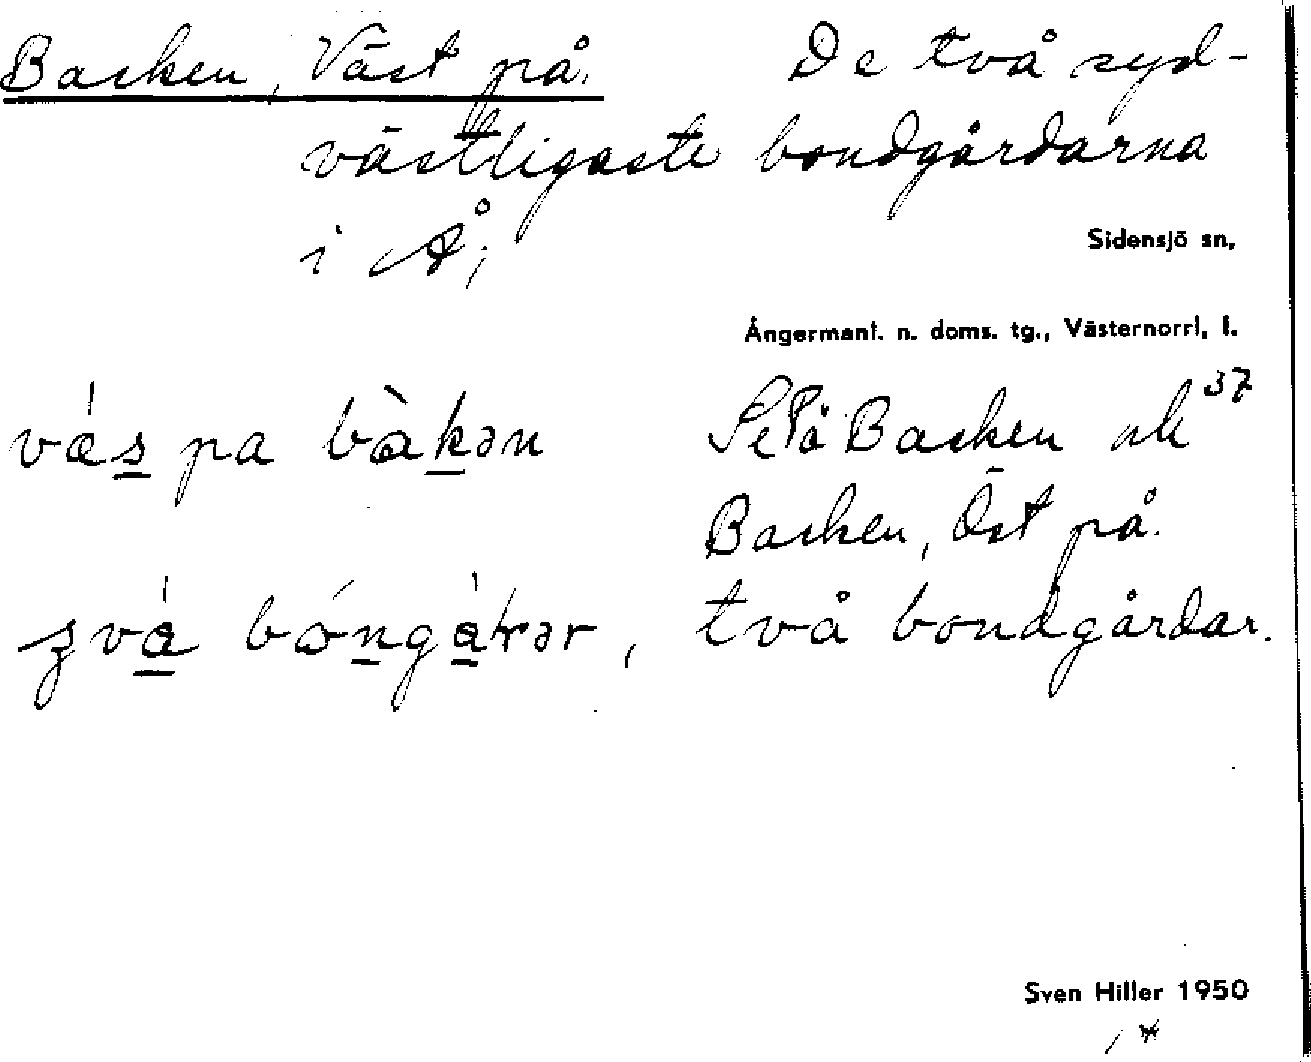 Backen, Väst på. De två syd-
västligaste bondgårdarna
i Å;
Sidensjö sn.
Ångermanl. n. doms. tg., Västernorrl. l.
vǽs pa bàkən Se På Backen och 37
Backen, Öst på.
två bondgårdar.
Sven Hiller 1950